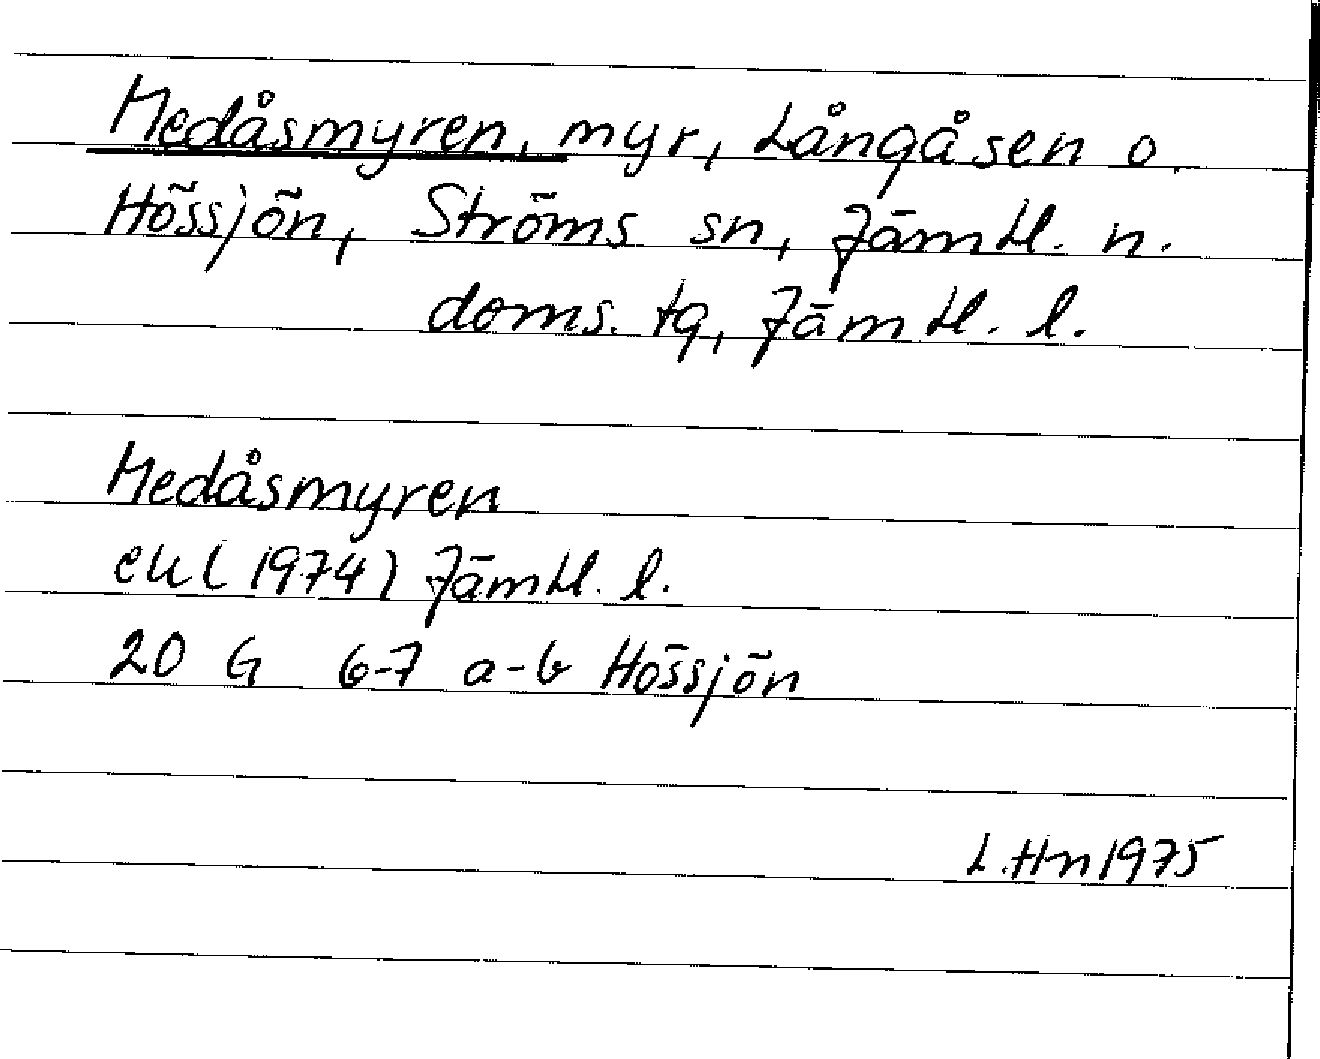 Medåsmyren, myr, Långåsen o.
Hössjön, Ströms sn, Jämtl. n.
doms. tg, Jämtl. l.
Medåsmyren
ekl (1974) Jämtl. l.
20 G 6-7 a-b Hössjön
L.Hn 1975